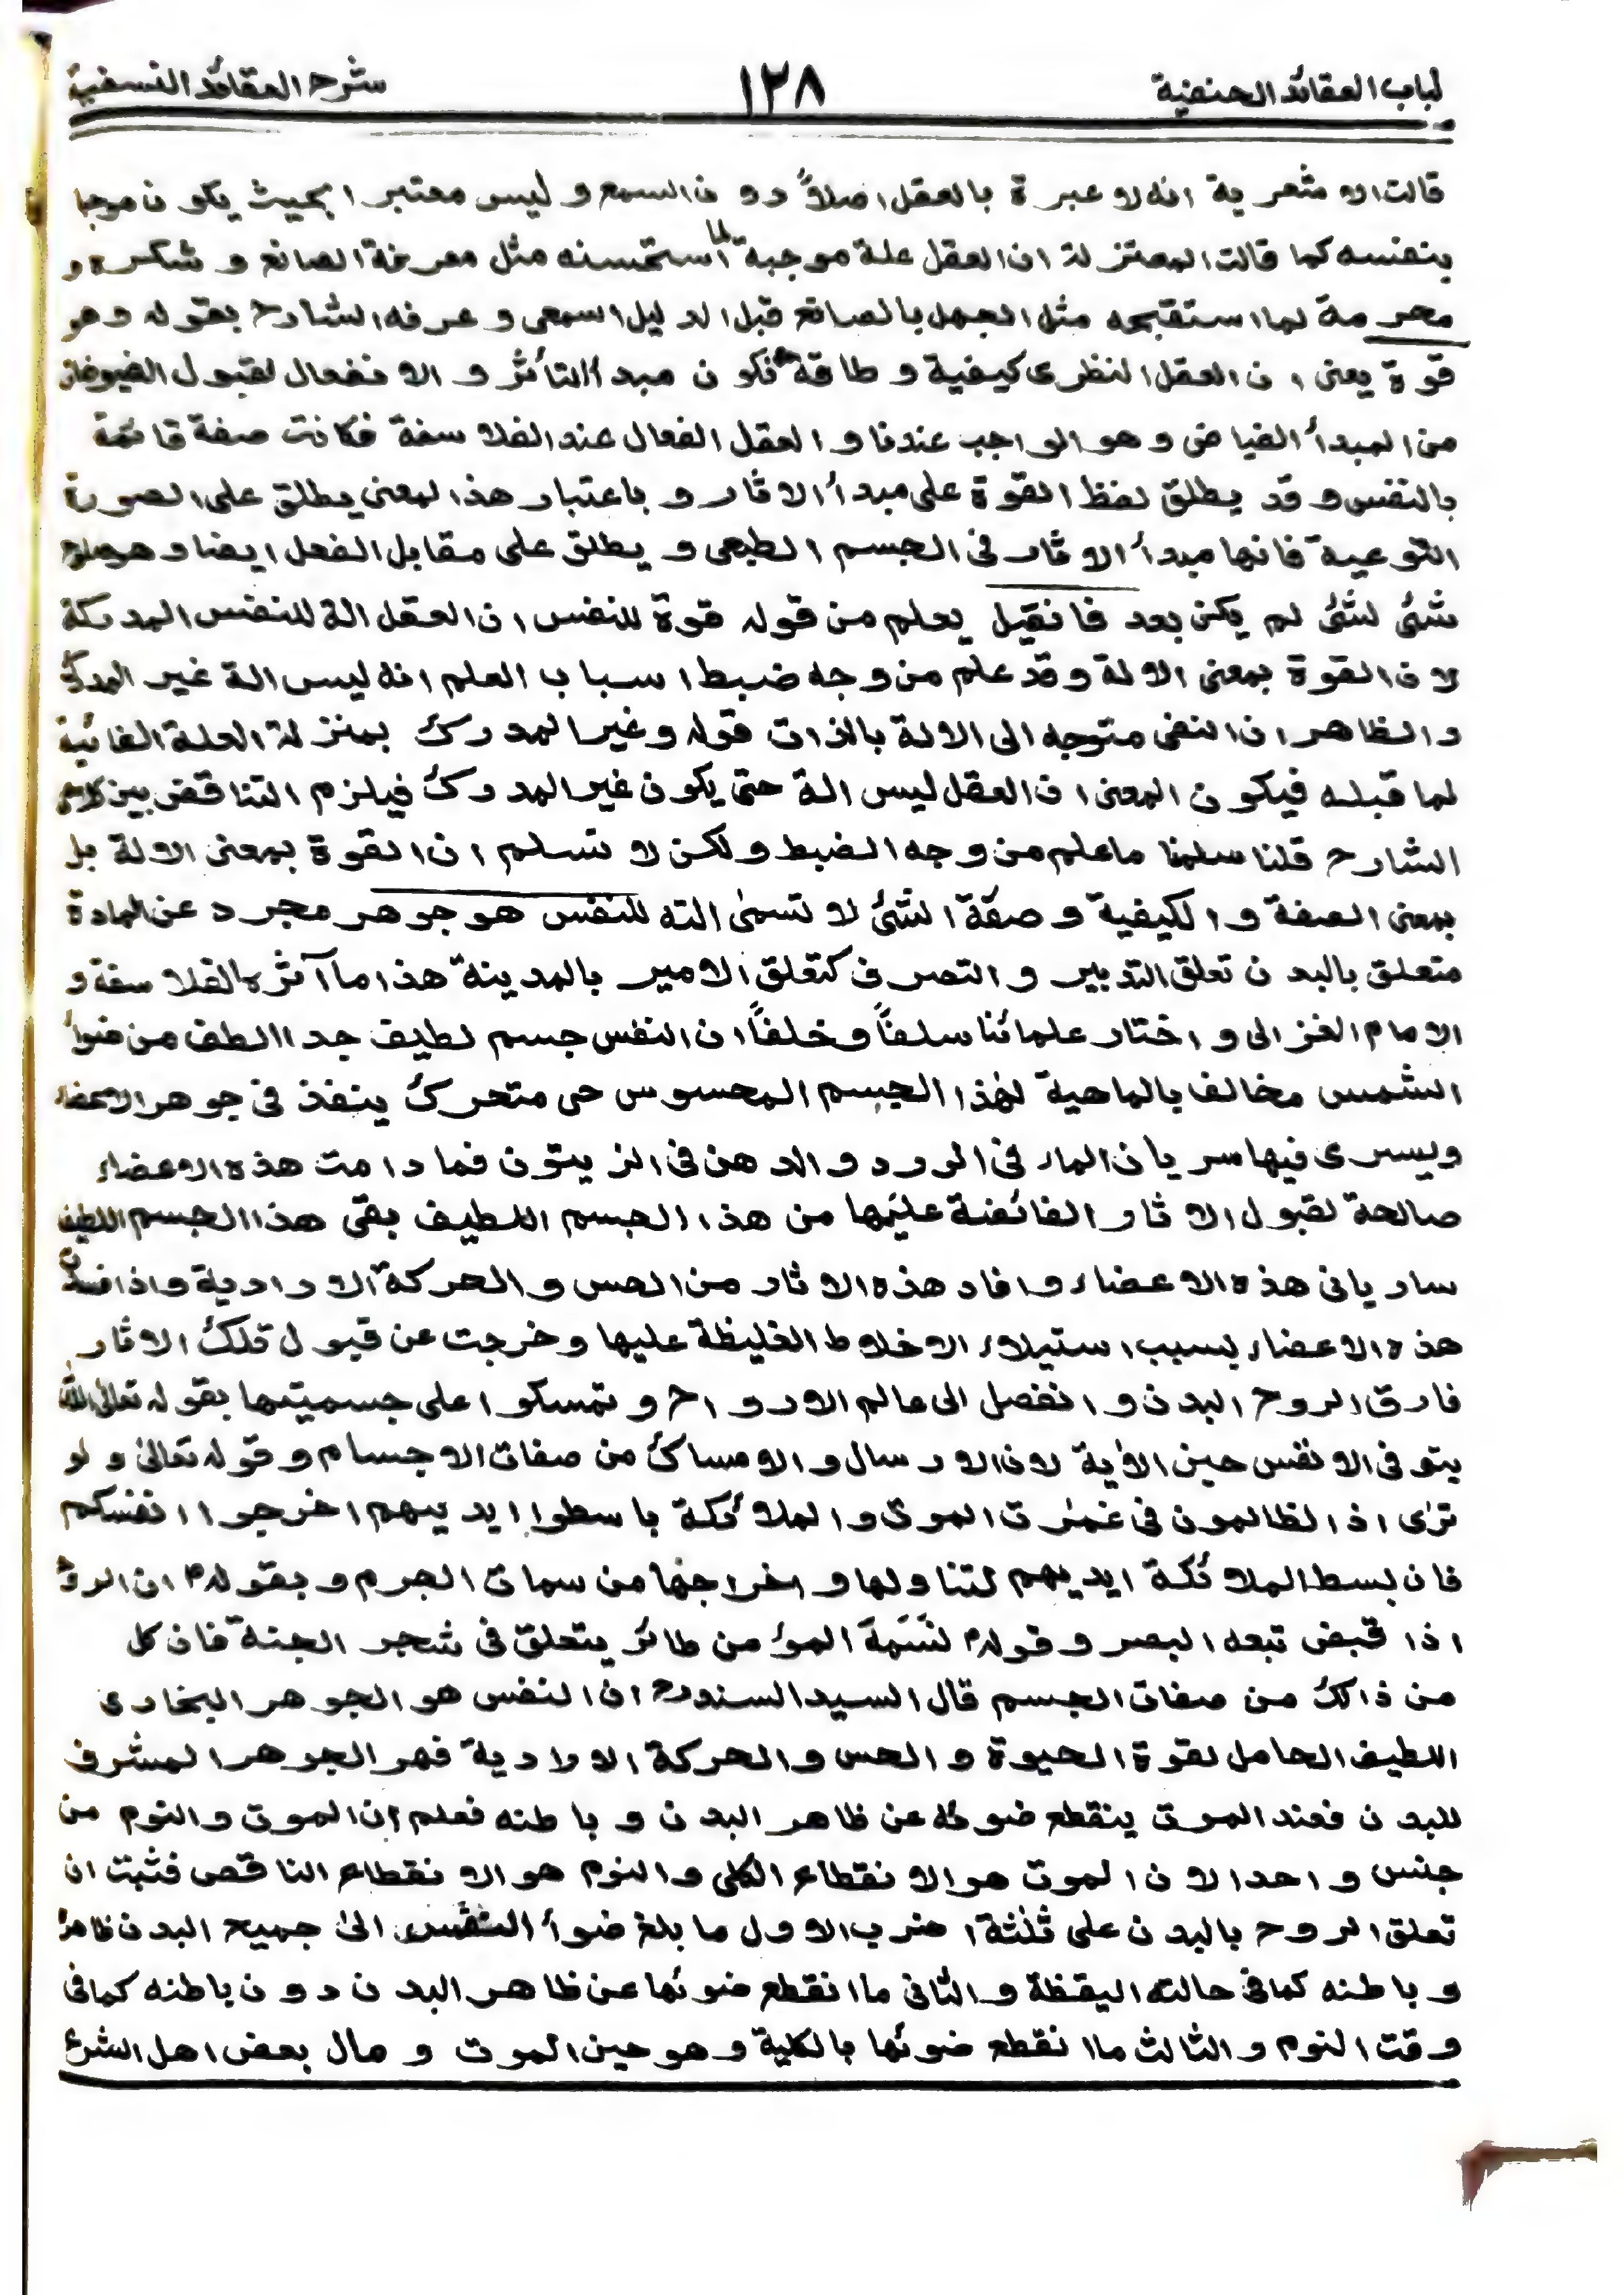 لباب العقائد الحنفية ١٢٨ شرح العقائد النسفية
قالت الاشعرية انه لا عبرة بالعقل اصلاً دون السمع و ليس معتبرا بحيث يكون موجبا
بنفسه كما قالت المعتزلة ان العقل علة موجبة لما استحسنه مثل معرفة الصانع و شكره و
محرمة لما استقبحه مثل الجهل بالصانع قبل الدليل السمعى و عرفه الشارح بقوله وهو
قوة يعنى ان العقل النظرى كيفية و طاقة تكون مبدأ التأثر و الانفعال لقبول الفيوضات
من المبدأ الفياض و هو الواجب عندنا و العقل الفعال عند الفلاسفة فكانت صفة قائمة
بالنفس و قد يطلق لفظ القوة على مبدأ الاثار و باعتبار هذا المعنى يطلق على الصورة
النوعية فانها مبدأ الاثار فى الجسم الطبعى و يطلق على مقابل الفعل ايضا و هو صلوح
شئ لشئ لم يكن بعد فان قيل يعلم من قوله قوة للنفس ان العقل الة للنفس المدركة
لان القوة بمعنى الالة و قد علم من وجه ضبط اسباب العلم انه ليس الة غير المدرك
و الظاهر ان النفى متوجه الى الالة بالذات قوله و غير المدرك بمنزلة العلة الغائية
لما قبله فيكون المعنى ان العقل ليس الة حتى يكون غير المدرك فيلزم التناقض بين كلامى
الشارح قلنا سلمنا ما علم من وجه الضبط و لكن لا نسلم ان القوة بمعنى الالة بل
بمعنى الصفة و الكيفية و صفة الشئ لا تسمىٰ الته للنفس هو جوهر مجرد عن المادة
متعلق بالبدن تعلق التدبير و التصرف كتعلق الامير بالمدينة هذا ما آثره الفلاسفة و
الامام الغزالى و اختار علمائنا سلفاً و خلفاً ان النفس جسم لطيف جدا الطف من ضوأ
الشمس مخالف بالماهية لهٰذا الجسم المحسوس حى متحرك ينفذ فى جوهر الاعضاء
ويسرى فيها سريان الماء فى الورد و الدهن فى الزيتون فما دامت هذه الاعضاء
صالحة لقبول الاثار الفائضة عليها من هذا الجسم اللطيف بقى هذا الجسم اللطيف
ساريا فى هذه الاعضاء و افاد هذه الاثار من الحس و الحركة الارادية و اذا فسدت
هذه الاعضاء بسبب استيلاء الاخلاط الغليظة عليها و خرجت عن قبول تلك الاثار
فارق الروح البدن و انفصل الى عالم الارواح و تمسكوا على جسميتها بقوله تعالى الله
يتوفى الانفس حين الاٰية لان الارسال و الامساك من صفات الاجسام و قوله تعالىٰ و لو
ترٰى اذ الظالمون فى غمرٰت الموت و الملائكة باسطوا ايديهم اخرجوا انفسكم
فان بسط الملائكة ايديهم لتناولها و اخراجها من سمات الجرم و بقولهؐ ان الروح
اذا قبض تبعه البصر و قولهؐ لنَسَمَةَ المؤمن طائر يتعلق فى شجر الجنة فان كل
من ذالك من صفات الجسم قال السيد السندؒ ان النفس هو الجوهر البخارى
اللطيف الحامل لقوة الحيوة و الحس و الحركة الارادية فهو الجوهر المشرف
للبدن فعند الموت ينقطع ضوئه عن ظاهر البدن و باطنه فعلم ان الموت و النوم من
جنس واحد الا ان الموت هو الانقطاع الكلى و النوم هو الانقطاع الناقص فثبت ان
تعلق الروح بالبدن على ثلٰثة اضرب الاول ما بلغ ضوأ النفس الىٰ جميع البدن ظاهره
و باطنه كما فى حالته اليقظة و الثانى ما انقطع ضوئها عن ظاهر البدن دون باطنه كما فى
وقت النوم و الثالث ما انقطع ضوئها بالكلية و هو حين الموت و مال بعض اهل الشرع